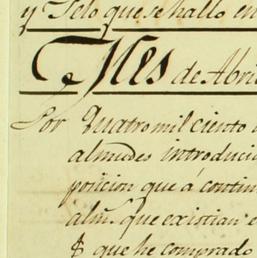 y Telo que se hallo en
Mes de Abri
Por Quatro mil ciento
almudes introduci
posicion que á contin
alm.s que existian e
$ que he comprado